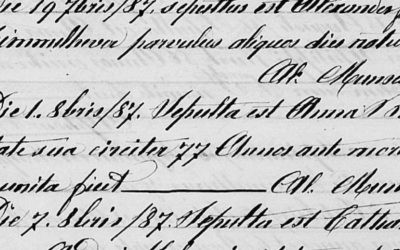 Die 19 7bris/87. sepultus est Alexander
parvulus aliquos dies natus
Al. Mausa
Die 1. 8bris/87. Sepulta est Anna M
tate sua circiter 77 Annos ante mor
munita fuit Al. Mau
Die 7. 8bris/87. Sepulta est Catha